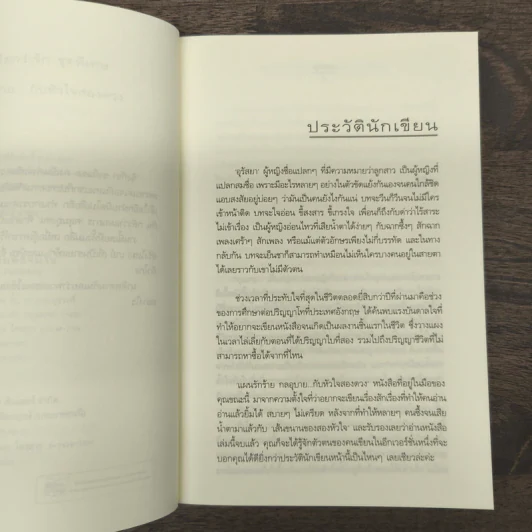 ประวัตินักเขียน
'อุรัสยา' ผู้หญิงชื่อแปลกๆ ที่มีความหมายว่าลูกสาว เป็นผู้หญิงที่
แปลกสมชื่อ เพราะมีอะไรหลายๆ อย่างในตัวขัดแย้งกันเองจนคนใกล้ชิด
แอบสงสัยอยู่บ่อยๆ ว่ามันเป็นคนยังไงกันแน่ บทจะวีนก็วีนจนไม่มีใคร
เข้าหน้าติด บทจะใจอ่อน ขี้สงสาร ขี้เกรงใจ เพื่อนก็ถึงกับด่าว่าไร้สาระ
ไม่เข้าเรื่อง เป็นผู้หญิงอ่อนไหวที่เสียน้ำตาได้ง่ายๆ กับฉากซึ้งๆ สักฉาก
เพลงเศร้าๆ สักเพลง หรือแม้แต่ตัวอักษรเพียงไม่กี่บรรทัด และในทาง
กลับกัน บทจะเย็นชาก็สามารถทำเหมือนไม่เห็นใครบางคนอยู่ในสายตา
ได้เลยราวกับเขาไม่มีตัวตน
ช่วงเวลาที่ประทับใจที่สุดในชีวิตตลอดยี่สิบกว่าปีที่ผ่านมาคือช่วง
ของการศึกษาต่อปริญญาโทที่ประเทศอังกฤษ ได้ค้นพบแรงบันดาลใจที่
ทำให้อยากจะเขียนหนังสือจนเกิดเป็นผลงานชิ้นแรกในชีวิต ซึ่งวางแผง
ในเวลาไล่เลี่ยกับตอนที่ได้ปริญญาใบที่สอง รวมไปถึงปริญญาชีวิตที่ไม่
สามารถหาซื้อได้จากที่ไหน
'แผนรักร้าย กลอุบาย..กับหัวใจสองดวง' หนังสือที่อยู่ในมือของ
คุณขณะนี้ มาจากความตั้งใจที่ว่าอยากจะเขียนเรื่องสักเรื่องที่ทำให้คนอ่าน
อ่านแล้วยิ้มได้ สบายๆ ไม่เครียด หลังจากที่ทำให้หลายๆ คนซึ้งจนเสีย
น้ำตามาแล้วกับ 'เส้นขนานของสองหัวใจ' และรับรองเลยว่าอ่านหนังสือ
เล่มนี้จบแล้ว คุณก็จะได้รู้จักตัวตนของคนเขียนในอีกเวอร์ชั่นหนึ่งที่จะ
บอกคุณได้ดียิ่งกว่าประวัตินักเขียนหน้านี้เป็นไหนๆ เลยเชียวล่ะค่ะ